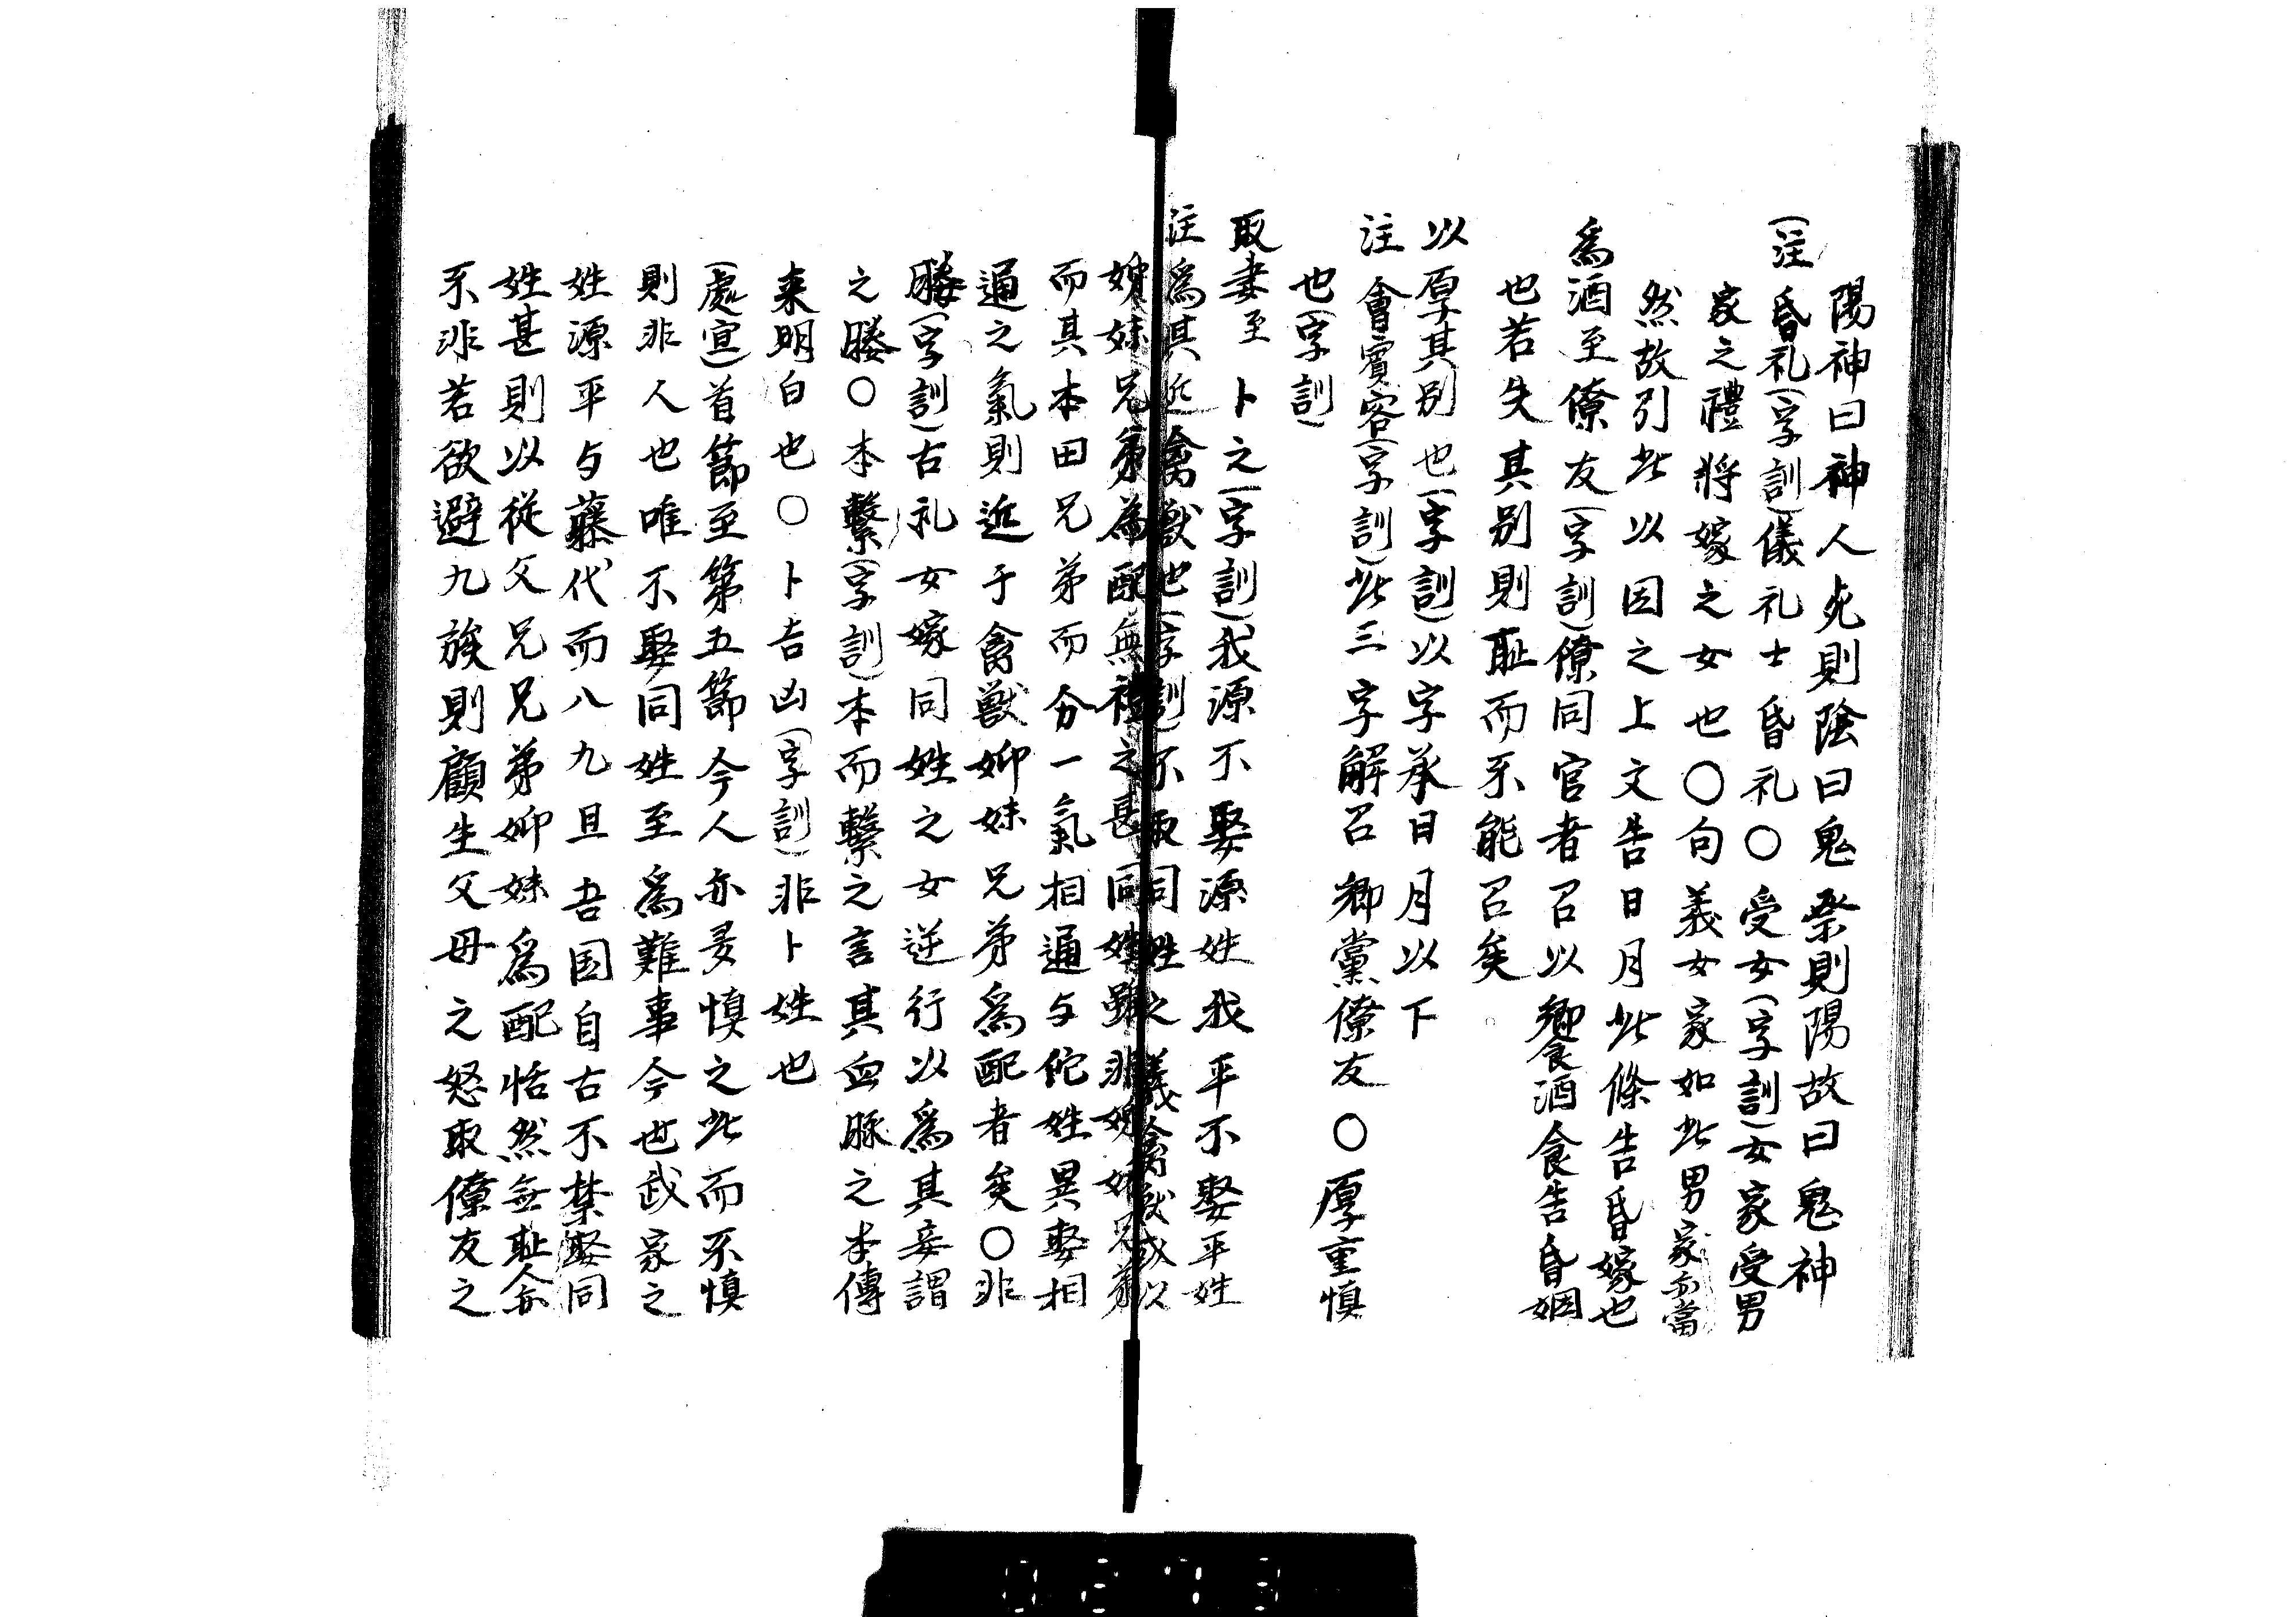 陽神曰神人死則陰曰鬼祭則陽故曰鬼神
(注)昏礼(字訓)儀礼士昏礼〇受女(字訓)女家受男
家之禮將嫁之女也〇句義女家如此男家亦當
然故引此以因之上文告日月此條告昏嫁也
為酒至僚友(字訓)僚同官者召以郷食酒食告昏姻
也若失其别則恥而不能召矣
以厚其别也(字訓)以字承日月以下
注會賓客(字訓)此三字解召郷黨僚友〇厚重慎
也(字訓)
取妻至卜之(字訓)我源不娶源姓我平不娶平姓
注為其近禽獣也(字訓)不取同姓之義禽獣或以
娚妹兄弟為配無禮之甚同姓雖非娚妹兄弟
而其本田兄弟而分一氣相通与佗姓異娶相
通之氣則近于禽獣娚妹兄弟為配者矣〇非
媵(字訓)古礼女嫁同姓之女逆行以為其妾謂
之媵〇本繋(字訓)本而繋之言其血脉之本傳
来明白也〇卜吉凶(字訓)非卜姓也
(處宣)首節至第五節今人亦多慎之此而不慎
則非人也唯不娶同姓至為難事今也武家之
姓源平与藤代而八九且吾国自古不禁娶同
姓甚則以從父兄兄弟娚妹為配恬然無恥人亦
不非若欲避九族則顧生父母之怒取僚友之